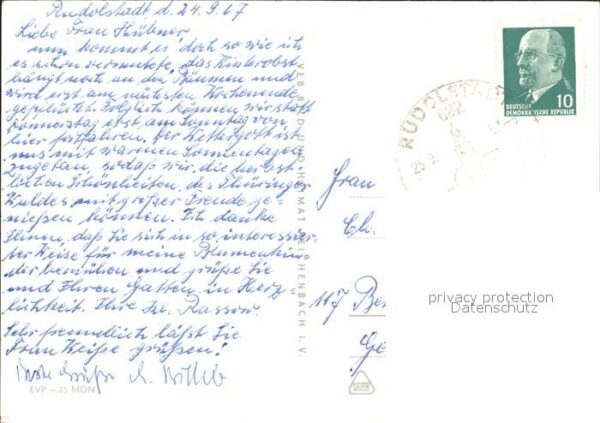 Rudolstadt d. 24.9.67
Liebe Frau Hübner
nun kommt es doch so wie ich
es schon vermutete, das Winterobst
hängt noch an den Bäumen und
wird erst am nächsten Wochenende
gepflückt. Folglich können wir statt
Donnerstag erst am Sonntag von
hier fortfahren. Der Wettergott ist
uns mit warmen Sonnentagen
zugetan, sodaß wir die herbst-
lichen Schönheiten des Thüringer
Waldes mit großer Freude ge-
nießen können. Ich danke
Ihnen, daß Sie sich in so interessier-
ter Weise für meine Blumenkin-
der bemühen und grüße Sie
und Ihren Gatten in Herz-
lichkeit. Ihre Frl. Rassow.
Sehr freundlich läßt Sie
Frau Weiße grüßen!
Beste Grüße
EVP -,25 MDN
VEB BILD UND HEIMAT REICHENBACH I. V.
Frau
Ch.
117 Ber
DEUTSCHE
DEMOKRATISCHE REPUBLIK
10
RUDOLSTADT
682
25.9.
privacy protection
Datenschutz